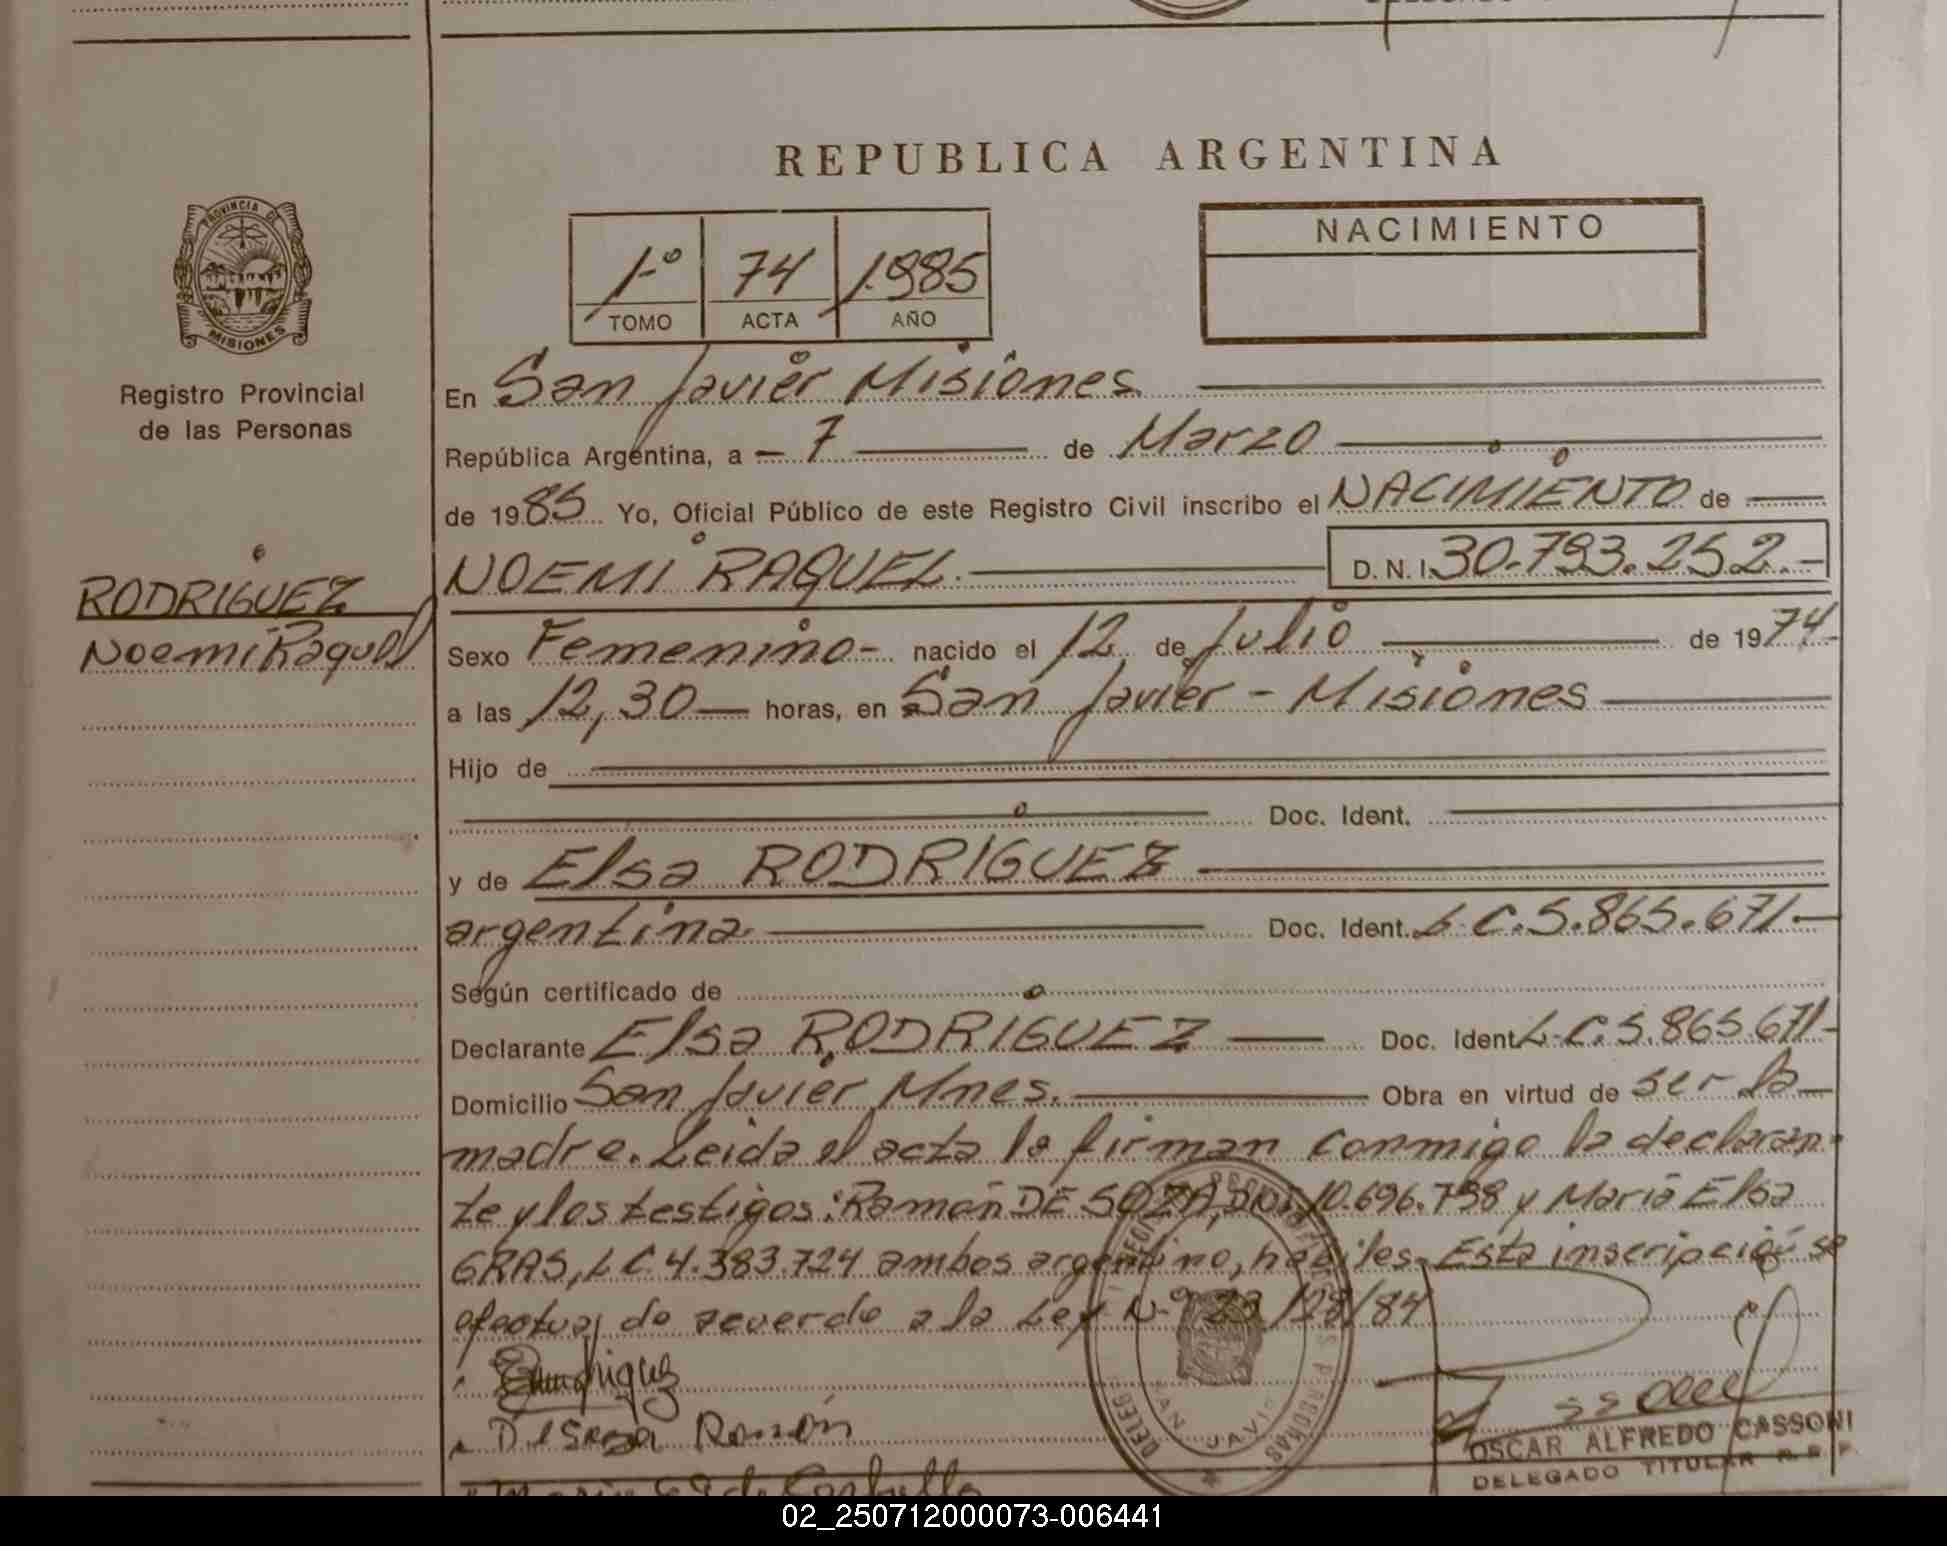 REPUBLICA ARGENTINA
PROVINCIA DE
MISIONES
Registro Provincial
de las Personas
1º 74 1.985
TOMO ACTA AÑO
NACIMIENTO
En San Javier Misiones
República Argentina, a - 7 de Marzo
de 1985 Yo, Oficial Público de este Registro Civil inscribo el NACIMIENTO de
RODRIGUEZ
Noemi Raquel
NOEMI RAQUEL. D. N. I. 30.793.252.-
Sexo Femenino- nacido el 12 de Julio de 1974
a las 12,30 horas, en San Javier - Misiones
Hijo de
Doc. Ident.
y de Elsa RODRIGUEZ
argentina. Doc. Ident. L.C. 5.865.671.-
Según certificado de
Declarante Elsa RODRIGUEZ Doc. Ident. L.C. 5.865.671-
Domicilio San Javier Mnes. Obra en virtud de ser la
madre. Leida el acta la firman conmigo la declaran-
te y los testigos: Ramón DE SOZA, 10.696.798 y Maria Elsa
GRAS, L C. 4.383.724 ambos argentino, habiles. Esta inscripción se
efectua de acuerdo a la Ley Nº 23/128/84
De Soza Ramón
SAN JAVIER
OSCAR ALFREDO CASSONI
DELEGADO TITULAR R.P.P.
02_250712000073-006441